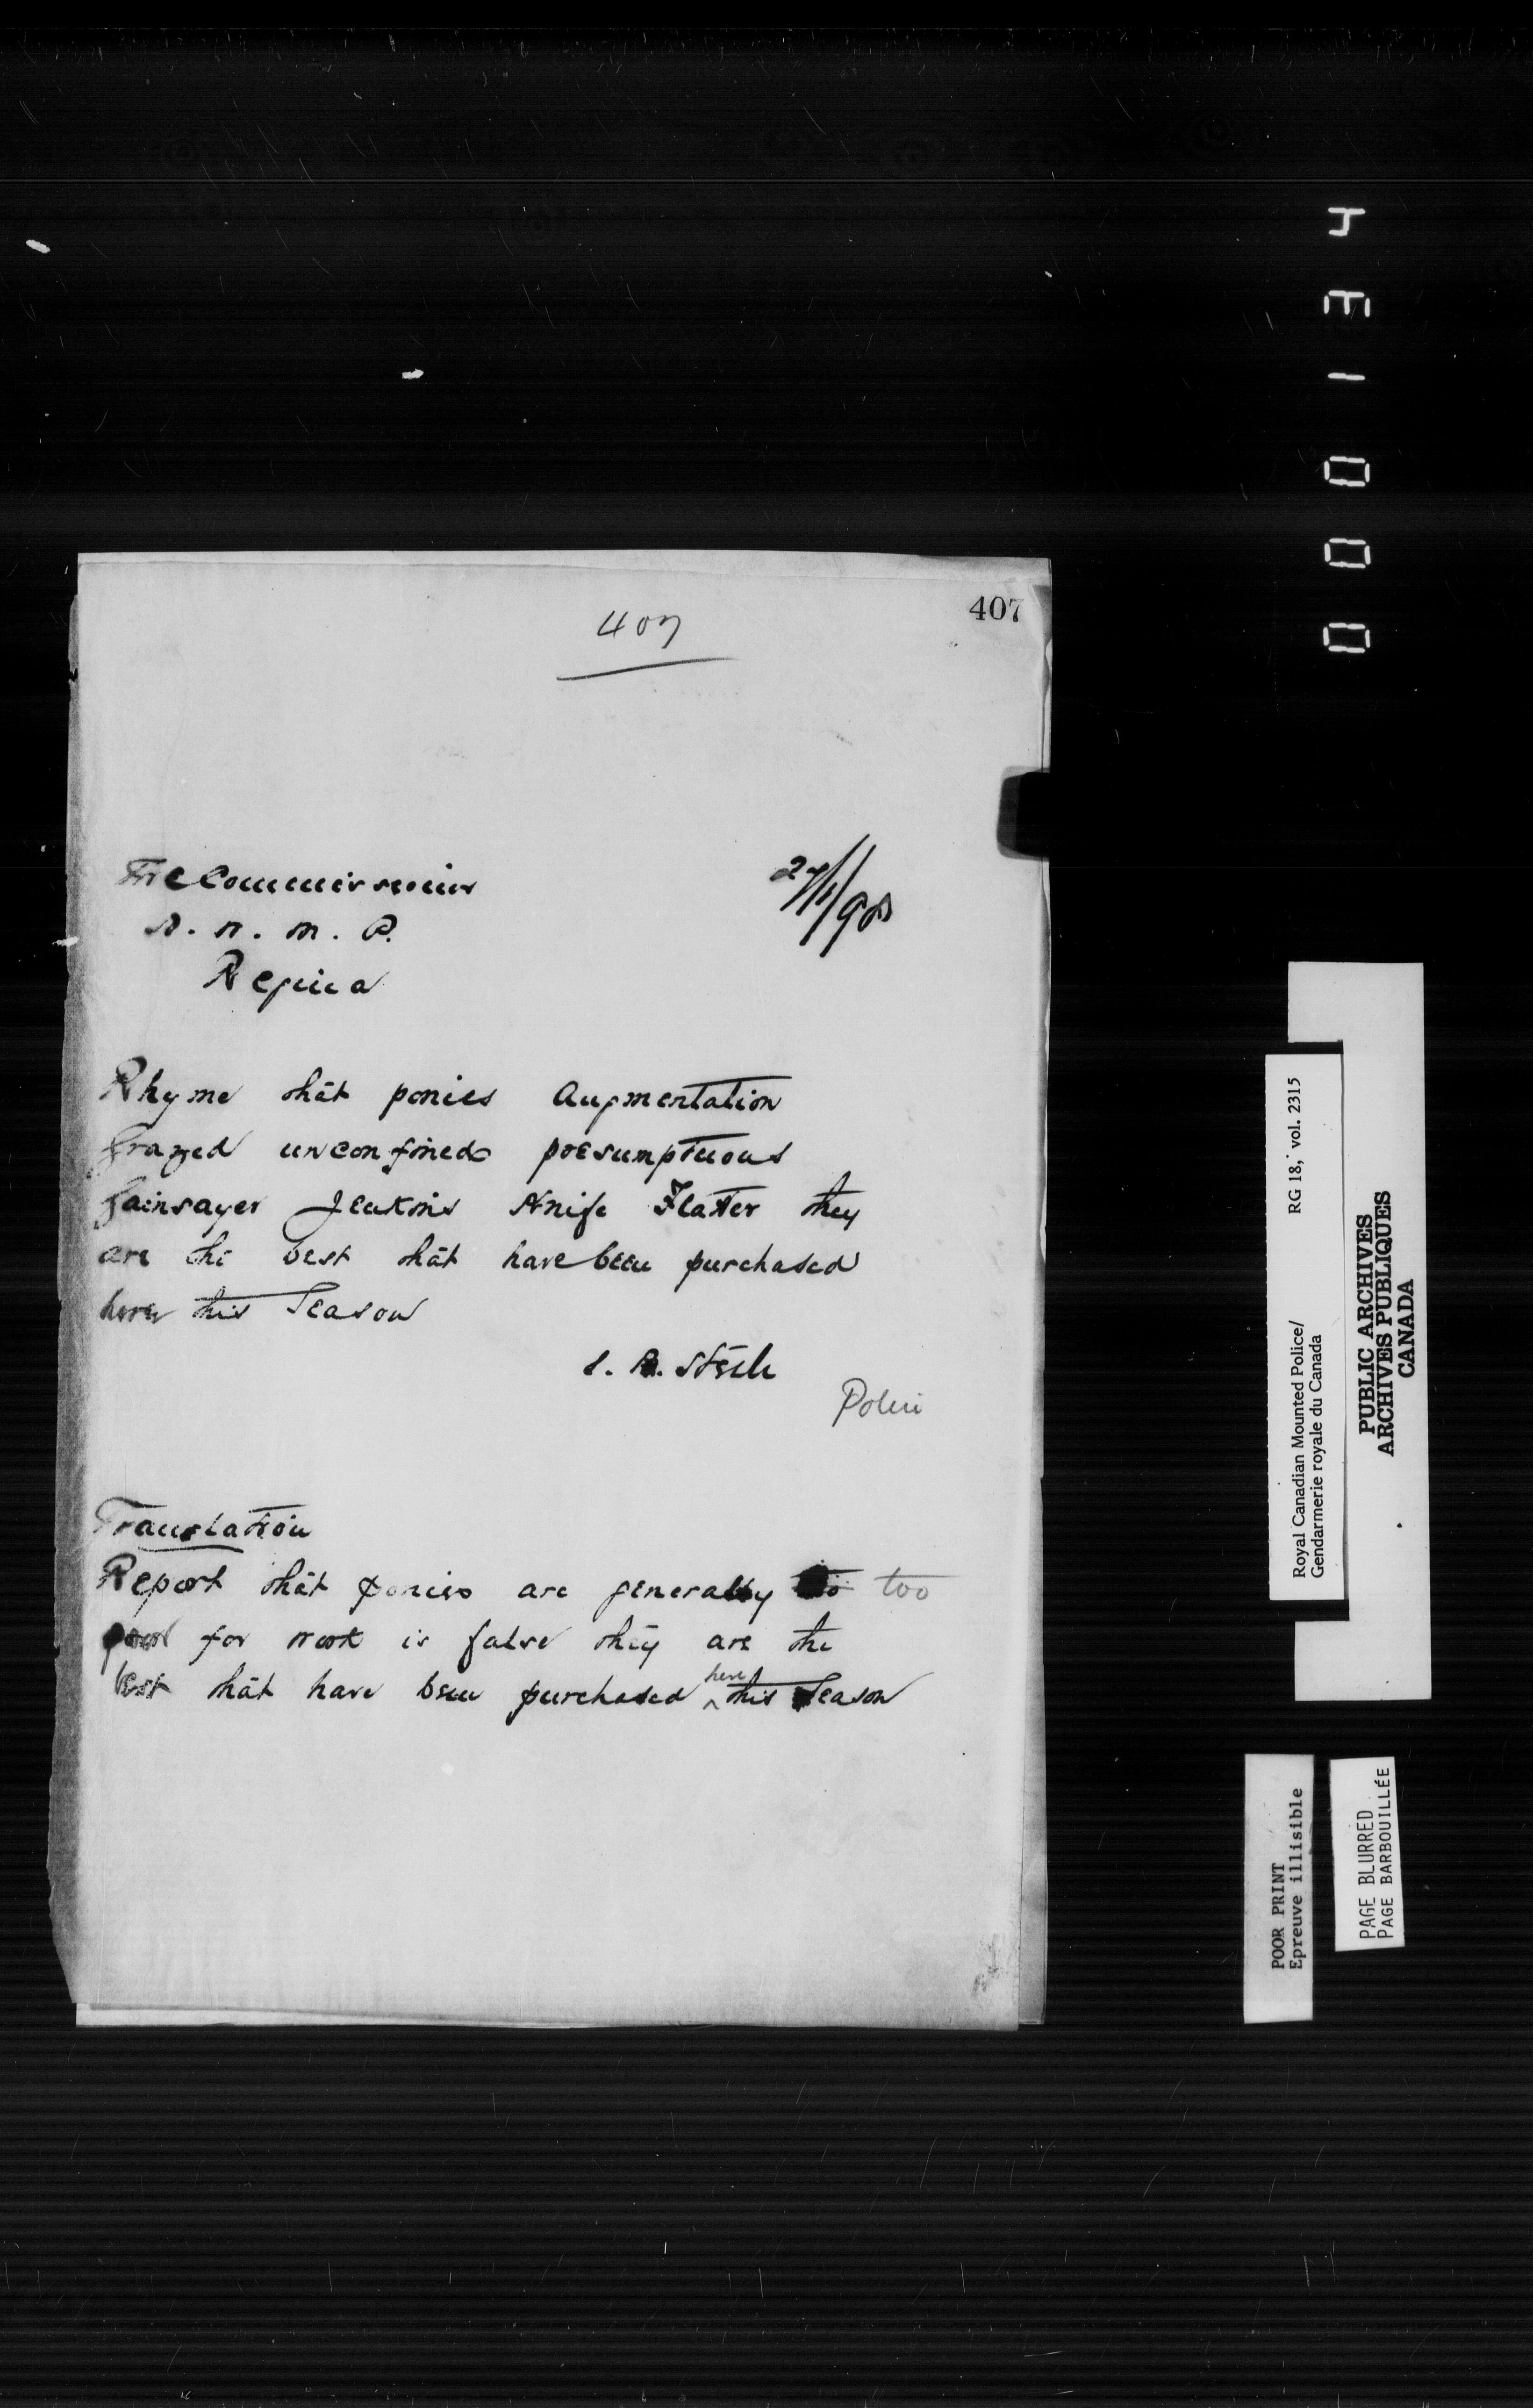 407
407
The Commissioner
27/1/98
N. W. M. P.
Regina
Rhyme that ponies Augmentation
grazed unconfined presumptuous
Gainsayer Jenkins Knife Flatter they
are the best that have been purchased
here this Season
S. B. Steele
Police
Translation
Report that ponies are generally too
poor for work is false they are the
best that have been purchased here this Season
J E 1 0 0 0
Royal Canadian Mounted Police/ RG 18, vol. 2315
Gendarmerie royale du Canada
PUBLIC ARCHIVES
ARCHIVES PUBLIQUES
CANADA
POOR PRINT
Epreuve illisible
PAGE BLURRED
PAGE BARBOUILLÉE